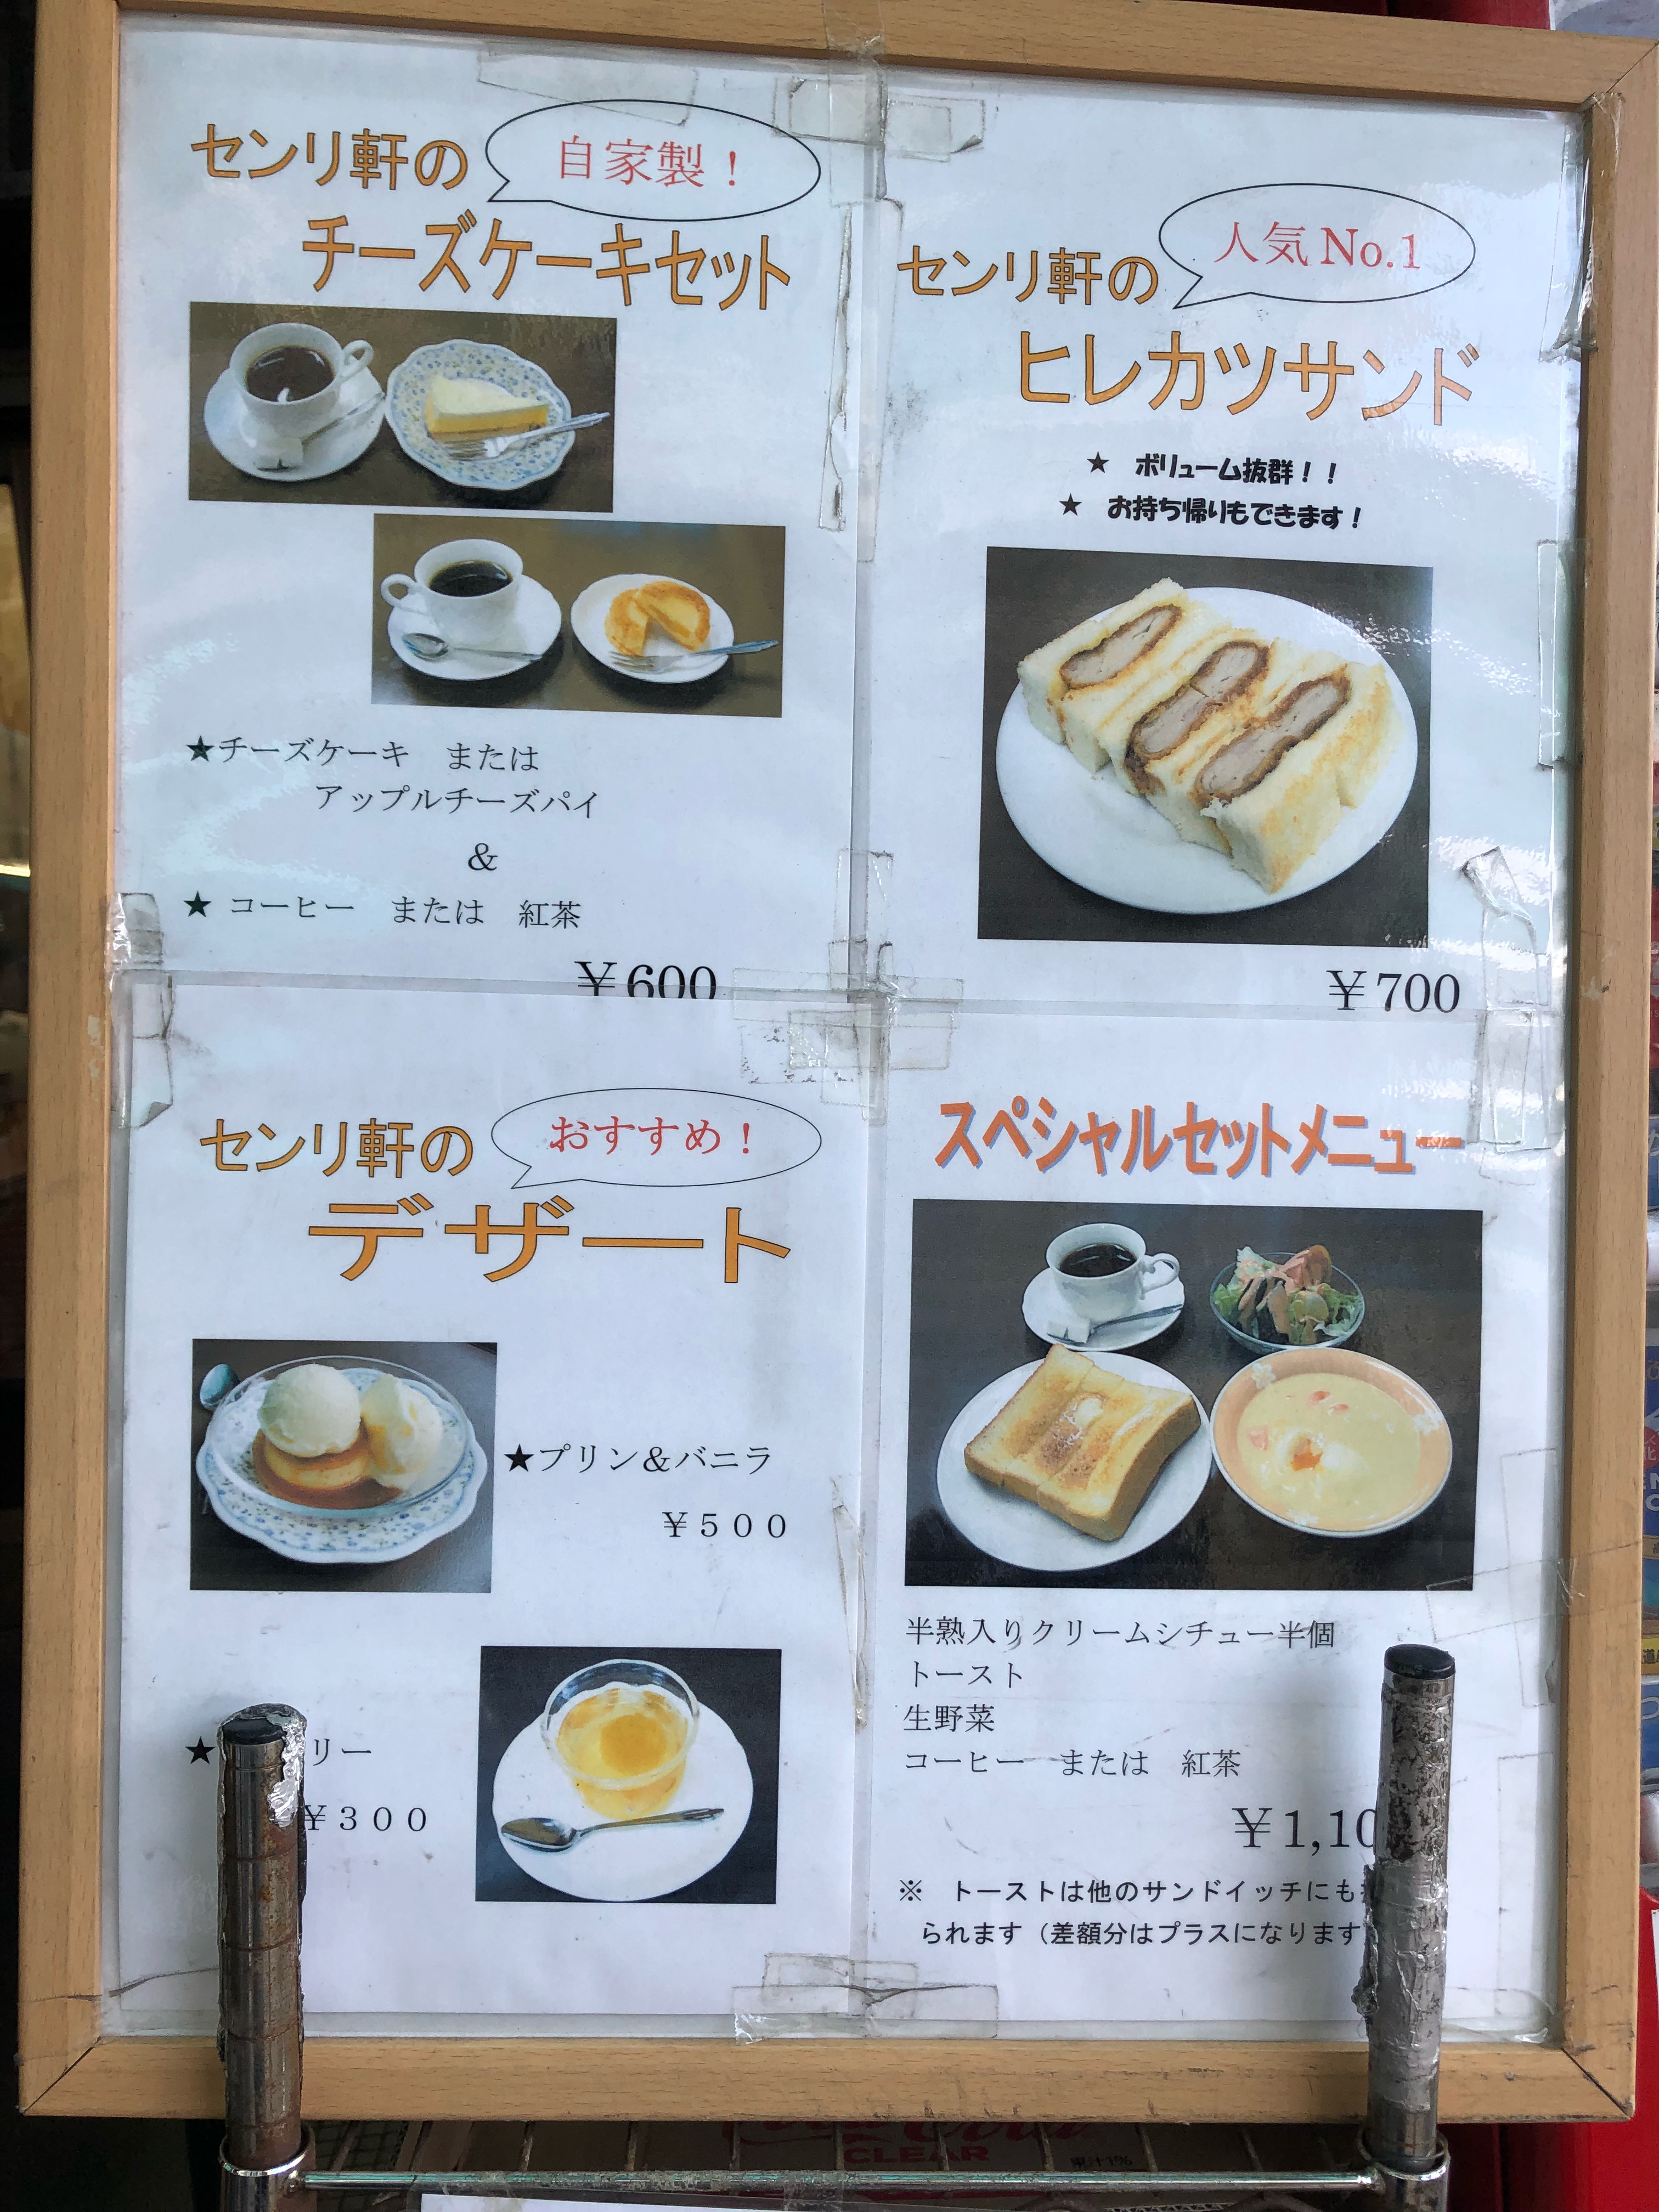 センリ軒の
自家製！
チーズケーキセット
★チーズケーキ　または
アップルチーズパイ
&
★ コーヒー　または　紅茶
￥600
センリ軒の
人気 No.1
ヒレカツサンド
★　ボリューム抜群！！
★　お持ち帰りもできます！
￥700
センリ軒の
おすすめ！
デザート
★プリン＆バニラ
￥５００
★
リー
￥３００
スペシャルセットメニュー
半熟入りクリームシチュー半個
トースト
生野菜
コーヒー　または　紅茶
￥1,10
※　トーストは他のサンドイッチにも
られます（差額分はプラスになります
CLEAR
果汁1%